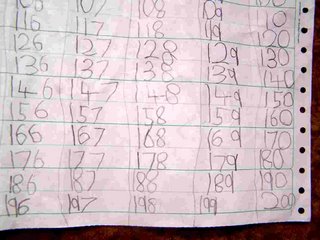 107 108 109
116 117 118 119 120
126 127 128 129 130
136 137 138 139 140
146 147 148 149 150
156 157 158 159 160
166 167 168 169 170
176 177 178 179 180
186 187 188 189 190
196 197 198 199 200